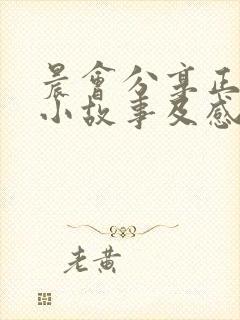 晨會分享正
小故事及感
老黄